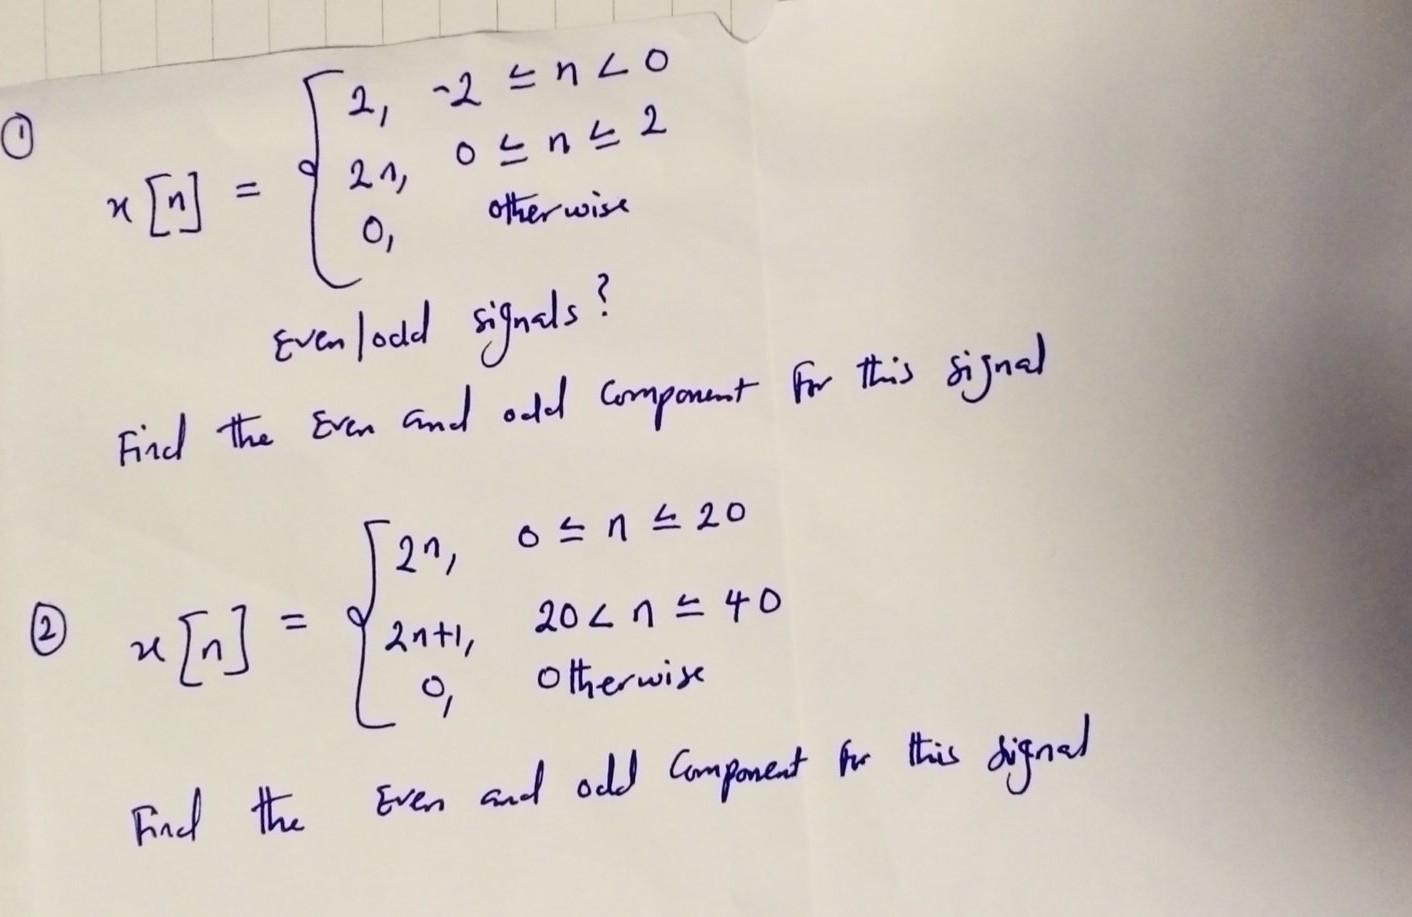 ① x[n] = { 2, -2 ≤ n < 0
2n, 0 ≤ n ≤ 2
0, otherwise
Even/odd signals?
Find the Even and odd Component for this signal
② x[n] = { 2n, 0 ≤ n ≤ 20
2n+1, 20 < n ≤ 40
0, otherwise
Find the Even and odd Component for this signal